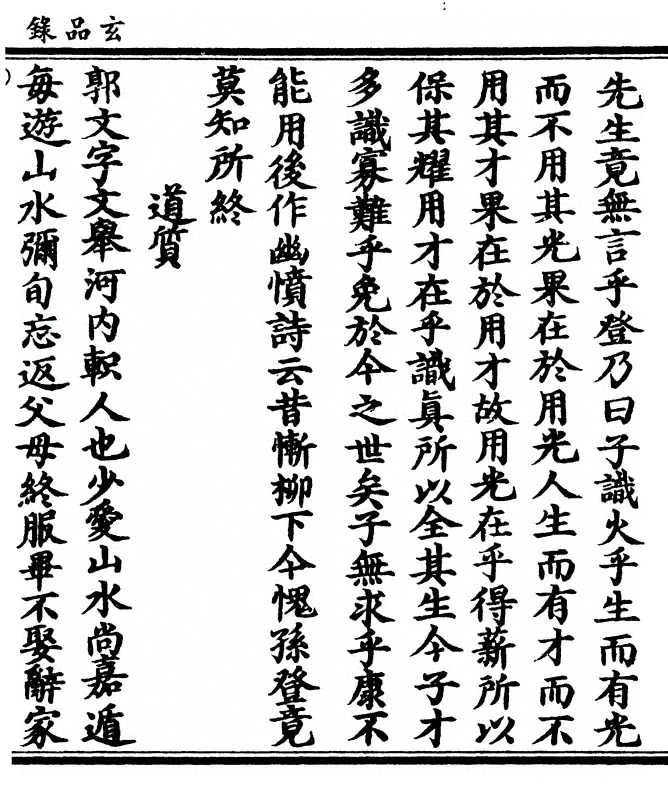 玄品錄
先生竟無言乎登乃曰子識火乎生而有光
而不用其光果在於用光人生而有才而不
用其才果在於用才故用光在乎得薪所以
保其耀用才在乎識眞所以全其生今子才
多識寡難乎免於今之世矣子無求乎康不
能用後作幽憤詩云昔慚柳下今愧孫登竟
莫知所終
道質
郭文字文舉河內軹人也少愛山水尚嘉遁
每遊山水彌旬忘返父母終服畢不娶辭家